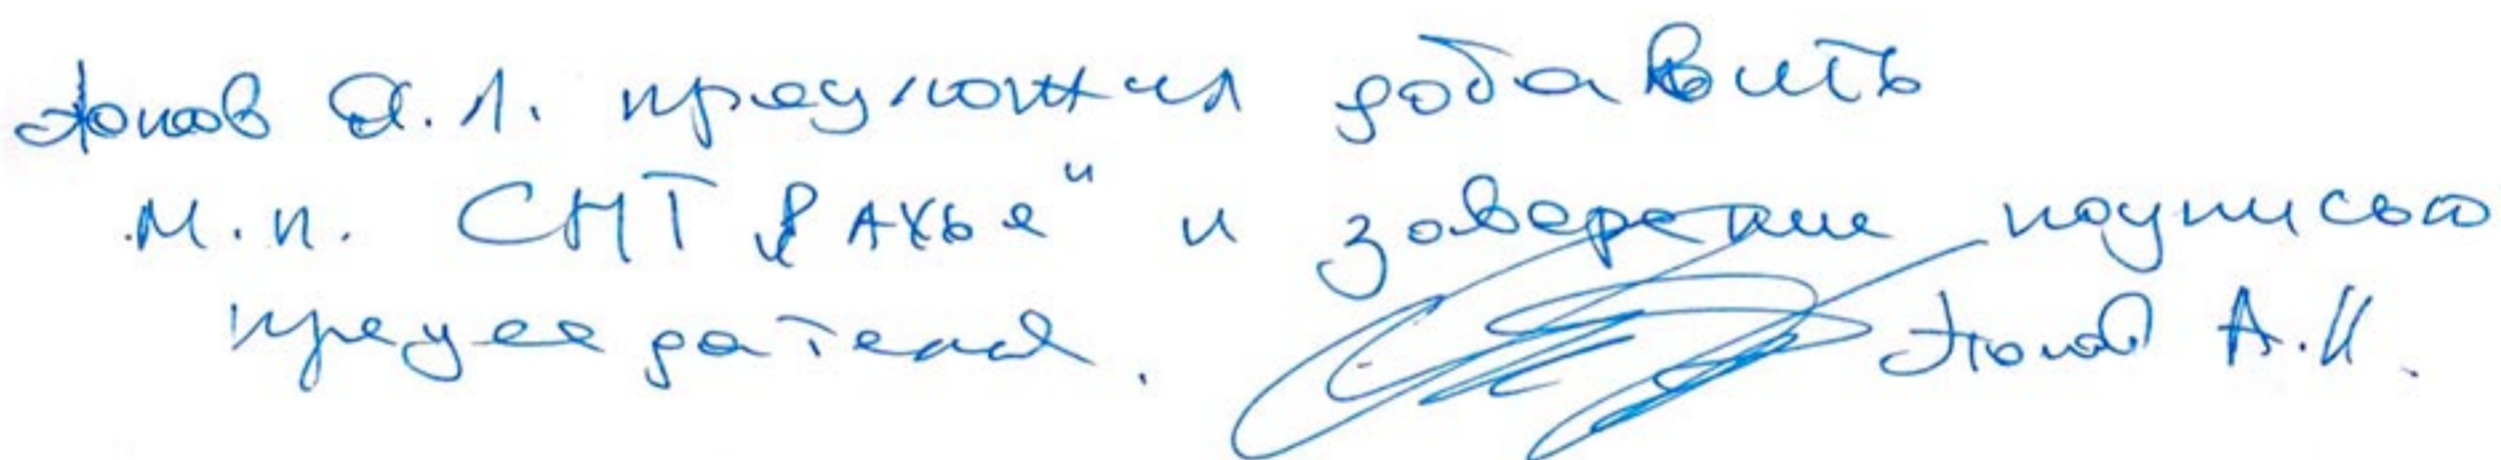 А. Л. предложил добавить
М.п. СНТ „Рахья“ и заверение подписью
председателя. А.И.